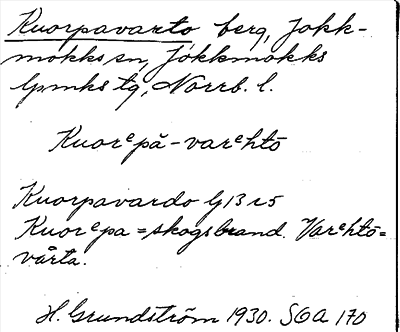 Kuorpavarto berg, Jokk-
mokks sn, Jokkmokks
lpmks tg, Norrb. l.
Kuorᵉpå-varᵉhtō
Kuorpavardo
Kuorᵉpa = skogsbrand. Varᵉhtō=
vårta.
H. Grundström 1930. SOA 170